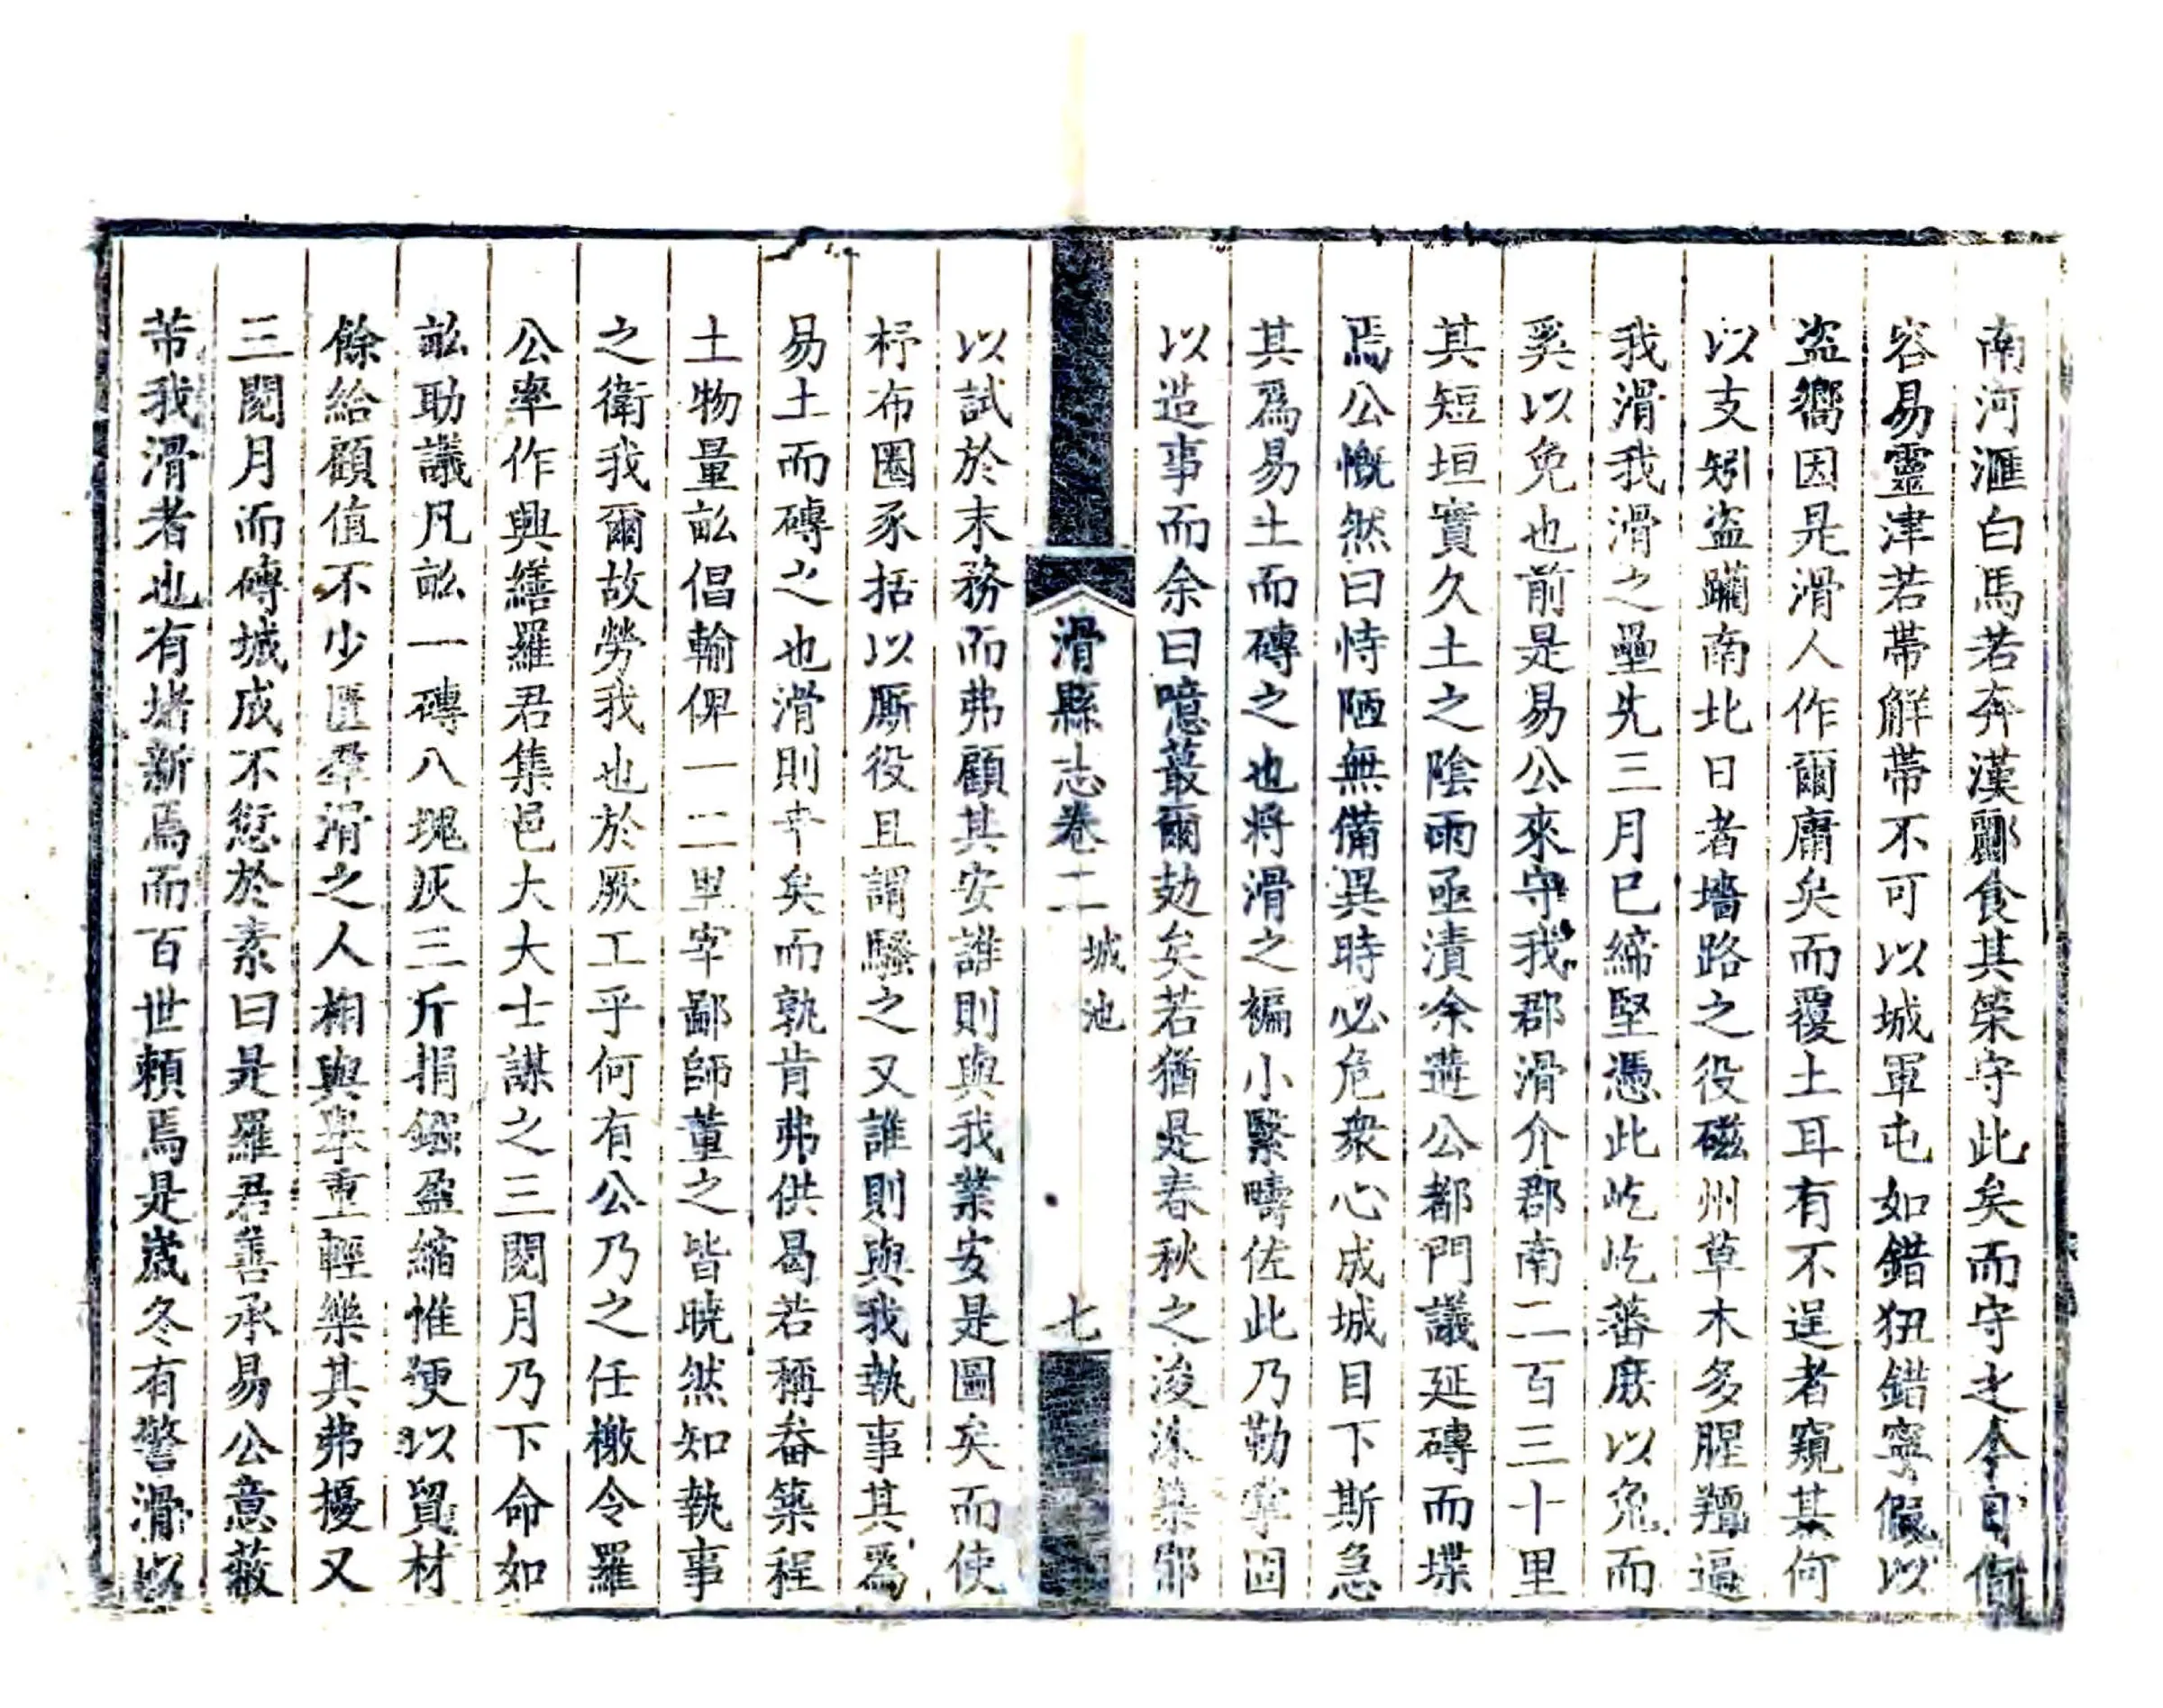 南河滙白馬若奔漢酈食其策守此矣而守之今日
容易靈津若帶解帶不可以城軍屯如錯狃錯寧假以
盜嚮因是滑人作爾庸矣而覆土耳有不逞者窺其何
以支矧盜躪南北日者墻路之役磁州草木多腥羶逼
我滑我滑之壘先三月巳締堅憑此屹屹蕃庶以免而
奚以免也前是易公來守我郡滑介郡南二百三十里
其短垣實久土之陰雨亟漬余遊公都門議延磚而堞
焉公慨然曰恃陋無備異時必危衆心成城目下斯急
其爲易土而磚之也將滑之褊小緊疇佐此乃勒掌固
以造事而余曰噫蕞爾攰矣若猶是春秋之浚洙築郿
以試於末務而弗顧其安誰則與我業安是圖矣而使
杼布圈豕括以厮役且謂騷之又誰則與我執事其爲
易土而磚之也滑則幸矣而孰肯弗供曷若稱畚築程
土物量畝倡輸俾一二里宰鄙師董之皆曉然知執事
之衛我爾故勞我也於厥工乎何有公乃之任檄令羅
公率作興繕羅君集邑大大士謀之三閱月乃下命如
畝助議凡畝一磚八塊灰三斤捐鏹盈縮惟便以貿材
餘給顧值不少匱羣滑之人相與舉重輕樂其弗擾又
三閱月而磚城成不愆於素曰是羅君善承易公意蔽
芾我滑者也有堵新焉而百世賴焉是歲冬有警滑以
滑縣志卷二
城池
七